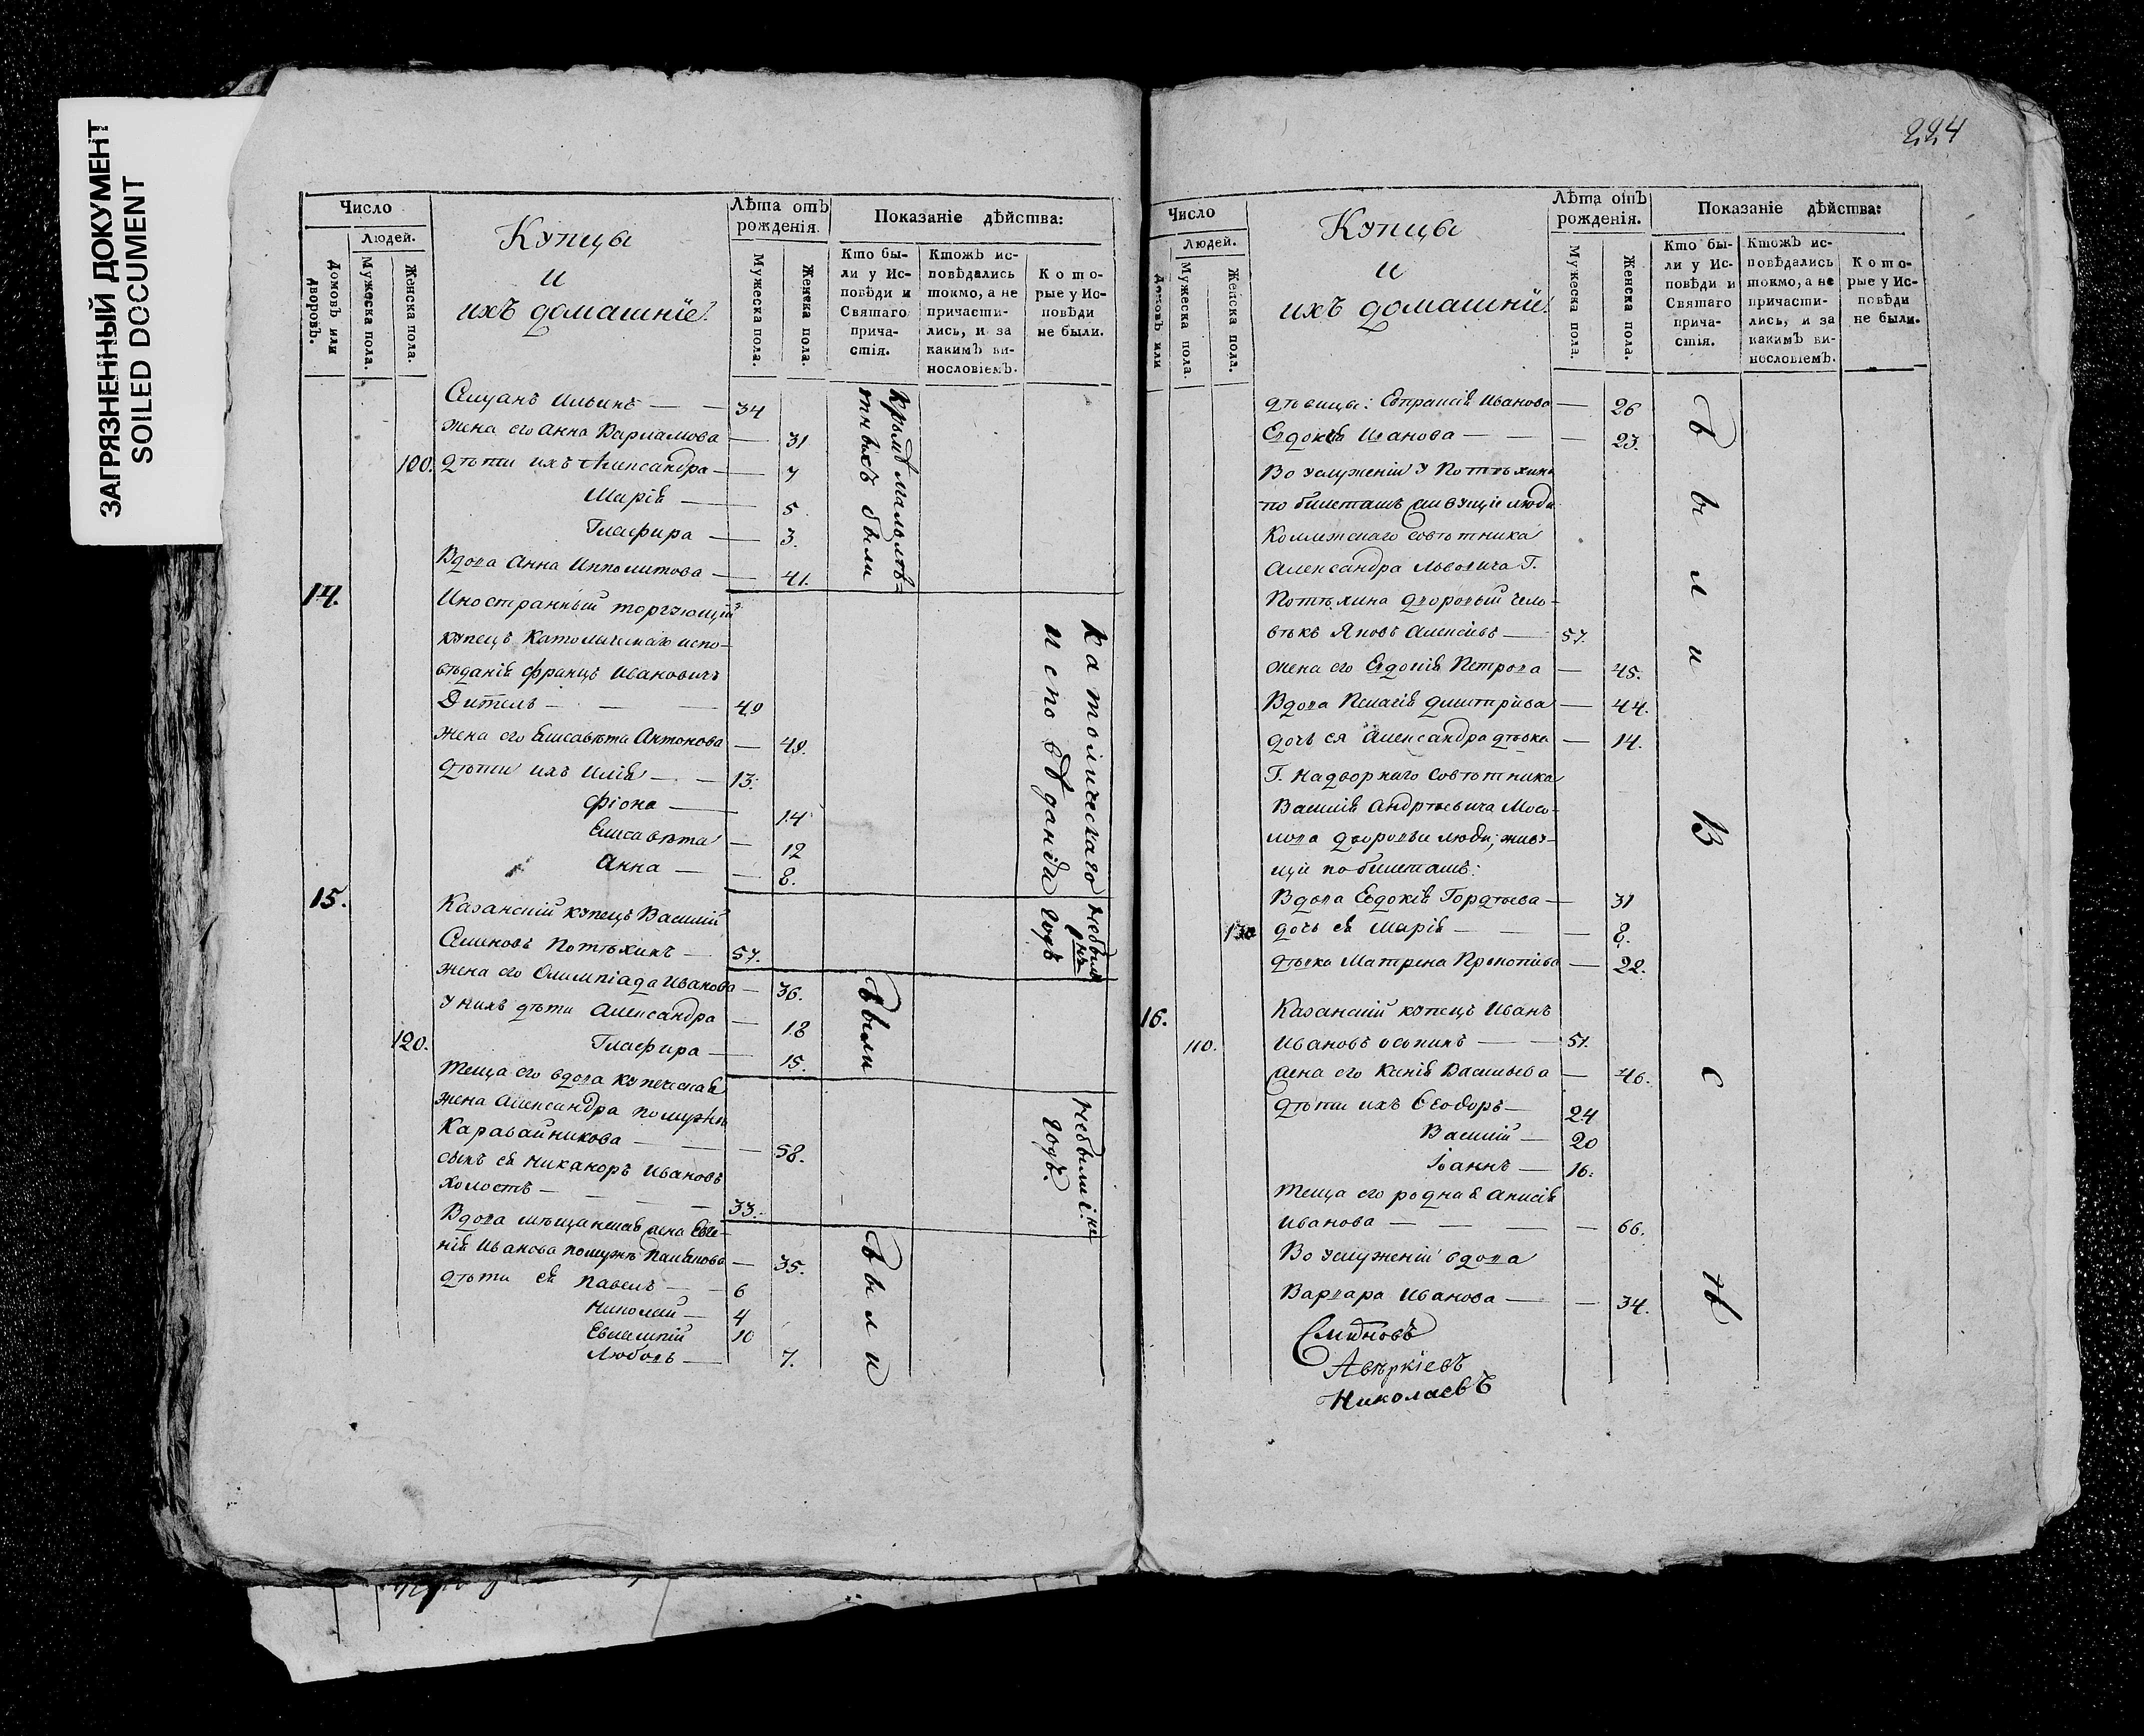 ЗАГРЯЗНЕННЫЙ ДОКУМЕНТ
SOILED DOCUMENT
Число
Людей.
Домовъ или дворовъ.
Мужеска пола.
Женска пола.
Купцы
и
ихъ домашніе.
Лѣта отъ рожденія.
Мужеска пола.
Женска пола.
Показаніе дѣйства:
Кто были у Исповѣди и Святаго причастія.
Ктожъ исповѣдались токмо, а не причастились, и за какимъ винословіемъ.
Которые у Исповѣди не были.
Силуанъ Ильинъ — 34
жена его Анна Варламова — 31
100. дѣти ихъ Александра — 7
Марія — 5
Глафира — 3.
Вдова Анна Ипполитова — 41.
Кромѣ малолѣтныхъ были
14. Иностранный торгующій
купецъ Католическаго испо-
вѣданія Францъ Ивановичъ
Дительъ — 49
жена его Елисавѣта Антонова — 49.
дѣти ихъ Илія — 13.
Фіона — 14
Елисавѣта — 12
Анна — 8.
Католическаго
исповѣданія
15. Казанскій купецъ Василій
Семеновъ Потѣхинъ — 57.
небылъ
годъ
жена его Олимпіада Иванова — 36.
У нихъ дѣти Александра — 18
120. Глафира — 15.
были
теща его вдова купеческая
жена Александра по мужѣ
Каравайникова — 58.
сынъ ея Никаноръ Ивановъ
холостъ — 33.
небыли
годъ.
Вдова мѣщанская жена Евге-
нія Иванова по мужѣ — 35.
дѣти ея Павелъ — 6
Николай — 4
Евлампій — 10
Любовь — 7.
были
224
Число
Людей.
Домовъ или
Мужеска пола.
Женска пола.
Купцы
и
ихъ домашніе.
Лѣта отъ рожденія.
Мужеска пола.
Женска пола.
Показаніе дѣйства:
Кто были у Исповѣди и Святаго причастія.
Ктожъ исповѣдались токмо, а не причастились, и за какимъ винословіемъ.
Которые у Исповѣди не были.
дѣвицы: Евпраксія Иванова — 26
Евдокія Иванова — 23.
Во услуженіи у Потѣхина
по билетамъ живущіе люди
Коллежскаго совѣтника
Александра Львовича Г.
Потѣхина дворовый чело-
вѣкъ Яковъ Алексѣевъ — 57.
жена его Евдокія Петрова — 45.
Вдова Пелагія Димитріева — 44.
дочь ея Александра дѣвка — 14.
Г. Надворнаго совѣтника
Василія Андрѣевича Мосо-
лова дворовыя люди, живу-
щіе по билетамъ:
Вдова Евдокія Гордѣева — 31
130 дочь ея Марія — 8.
дѣвка Матрена Прокопіева — 22.
16. Казанскій купецъ Иванъ
110. Ивановъ Осокинъ — 51.
жена его Ксенія Васильева — 46.
дѣти ихъ Ѳеодоръ — 24
Василій — 20
Іоаннъ — 16.
теща его родная Анисія
Иванова — 66.
Во услуженіи вдова
Варвара Иванова — 34.
были всѣ
Смирновъ
Авѣркіевъ
Николаевъ